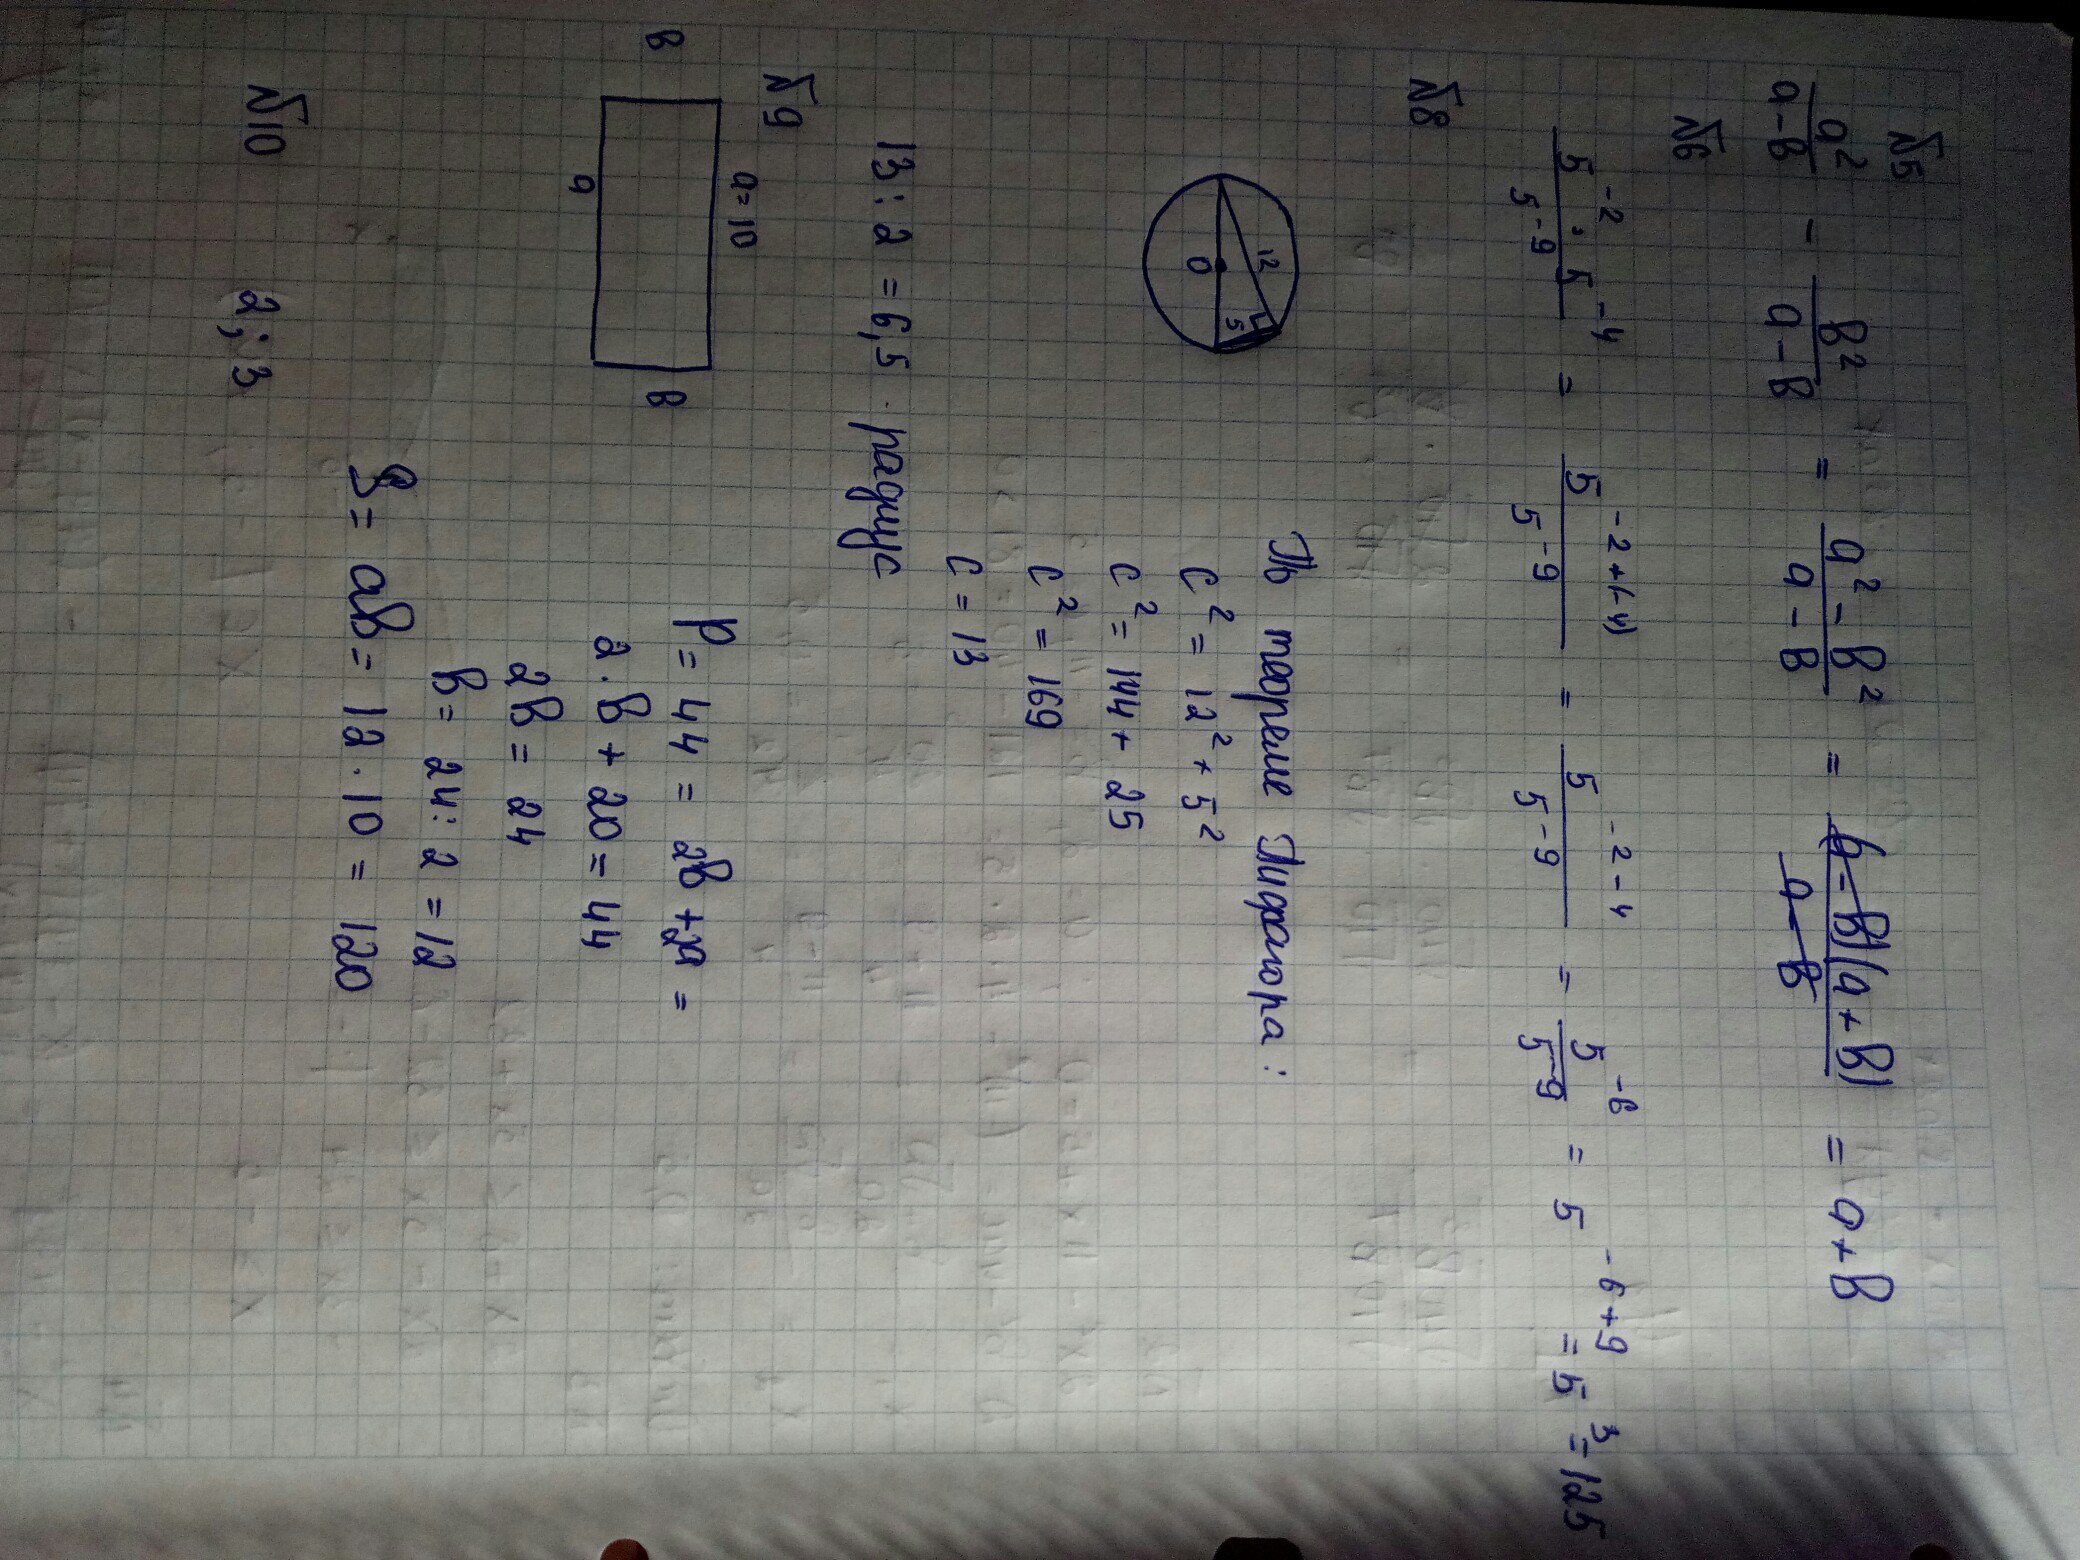 №5
a²/(a-в) - в²/(a-в) = (a²-в²)/(a-в) = (a-в)(a+в)/(a-в) = a+в
№6
(5⁻² · 5⁻⁴)/5⁻⁹ = 5⁻²⁺⁽⁻⁴⁾/5⁻⁹ = 5⁻²⁻⁴/5⁻⁹ = 5⁻⁶/5⁻⁹ = 5⁻⁶⁺⁹ = 5³ = 125
№8
12
5
O
По теореме Пифагора:
c² = 12² + 5²
c² = 144 + 25
c² = 169
c = 13
13 : 2 = 6,5 радиус
№9
a = 10
в
в
a
p = 44 = 2в + 2a =
2 · в + 20 = 44
2в = 24
в = 24 : 2 = 12
S = aв = 12 · 10 = 120
№10
2; 3